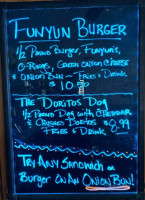 FUNYUN BURGER
1/2 POUND BURGER, FUNYUN'S,
O-RINGS, GREEN ONION CHEESE
ONION BUN ~ FRIES & DRINK
$10
THE DORITOS DOG
1/2 POUND DOG WITH CHEDDAR
& CRUSHED DORITOS 8.99
FRIES & DRINK
TRY ANY SANDWICH OR
BURGER ON AN ONION BUN!